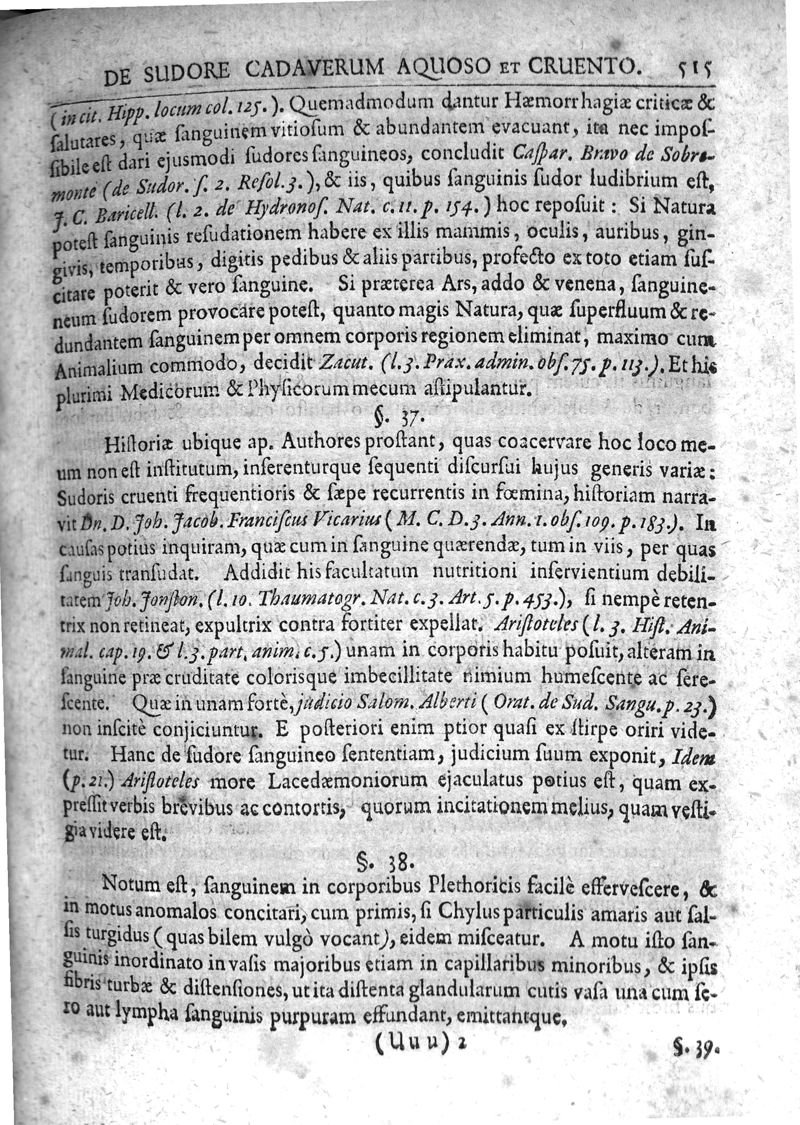 DE SUDORE CADAVERUM AQUOSO ET CRUENTO. 515
(in cit. Hipp. locum col. 125.). Quemadmodum dantur Hæmorrhagiæ criticæ &
ſalutares, quæ ſanguinem vitioſum & abundantem evacuant, ita nec impoſ-
ſibile eſt dari ejusmodi ſudores ſanguineos, concludit Caſpar. Bravo de Sobre-
monte (de Sudor. ſ. 2. Reſol. 3.), & iis, quibus ſanguinis ſudor ludibrium eſt,
J. C. Baricell. (l. 2. de Hydronoſ. Nat. c. 11. p. 154.) hoc repoſuit: Si Natura
poteſt ſanguinis reſudationem habere ex illis mammis, oculis, auribus, gin-
givis, temporibus, digitis pedibus & aliis partibus, profecto ex toto etiam ſuſ-
citare poterit & vero ſanguine. Si præterea Ars, addo & venena, ſanguine-
neum ſudorem provocare poteſt, quanto magis Natura, quæ ſuperfluum & re-
dundantem ſanguinem per omnem corporis regionem eliminat, maximo cum
Animalium commodo, decidit Zacut. (l. 3. Prax. admin. obſ. 75. p. 113.). Et his
plurimi Medicorum & Phyſicorum mecum aſtipulantur.
§. 37.
Hiſtoriæ ubique ap. Authores proſtant, quas coacervare hoc loco me-
um non eſt inſtitutum, inſerenturque ſequenti diſcurſui hujus generis variæ:
Sudoris cruenti frequentioris & ſæpe recurrentis in fœmina, hiſtoriam narra-
vit Dn. D. Joh. Jacob. Franciſcus Vicarius (M. C. D. 3. Ann. 1. obſ. 109. p. 183.). In
cauſas potius inquiram, quæ cum in ſanguine quærendæ, tum in viis, per quas
ſanguis tranſudat. Addidit his facultatum nutritioni inſervientium debili-
tatem Joh. Jonſton. (l. 10. Thaumatogr. Nat. c. 3. Art. 5. p. 453.), ſi nempè reten-
trix non retineat, expultrix contra fortiter expellat. Ariſtoteles (l. 3. Hiſt. Ani-
mal. cap. 19. & l. 3. part. anim. c. 5.) unam in corporis habitu poſuit, alteram in
ſanguine præ cruditate colorisque imbecillitate nimium humeſcente ac ſere-
ſcente. Quæ in unam fortè, judicio Salom. Alberti (Orat. de Sud. Sangu. p. 23.)
non inſcitè conjiciuntur. E poſteriori enim ptior quaſi ex ſtirpe oriri vide-
tur. Hanc de ſudore ſanguineo ſententiam, judicium ſuum exponit, Idem
(p. 21.) Ariſtoteles more Lacedæmoniorum ejaculatus potius eſt, quam ex-
preſſit verbis brevibus ac contortis, quorum incitationem melius, quam veſti-
gia videre eſt.
§. 38.
Notum eſt, ſanguinem in corporibus Plethoricis facilè efferveſcere, &
in motus anomalos concitari, cum primis, ſi Chylus particulis amaris aut ſal-
ſis turgidus (quas bilem vulgò vocant), eidem miſceatur. A motu iſto ſan-
guinis inordinato in vaſis majoribus etiam in capillaribus minoribus, & ipſis
fibris turbæ & diſtenſiones, ut ita diſtenta glandularum cutis vaſa una cum ſe-
ro aut lympha ſanguinis purpuram effundant, emittantque.
(Uuu) 2 §. 39.